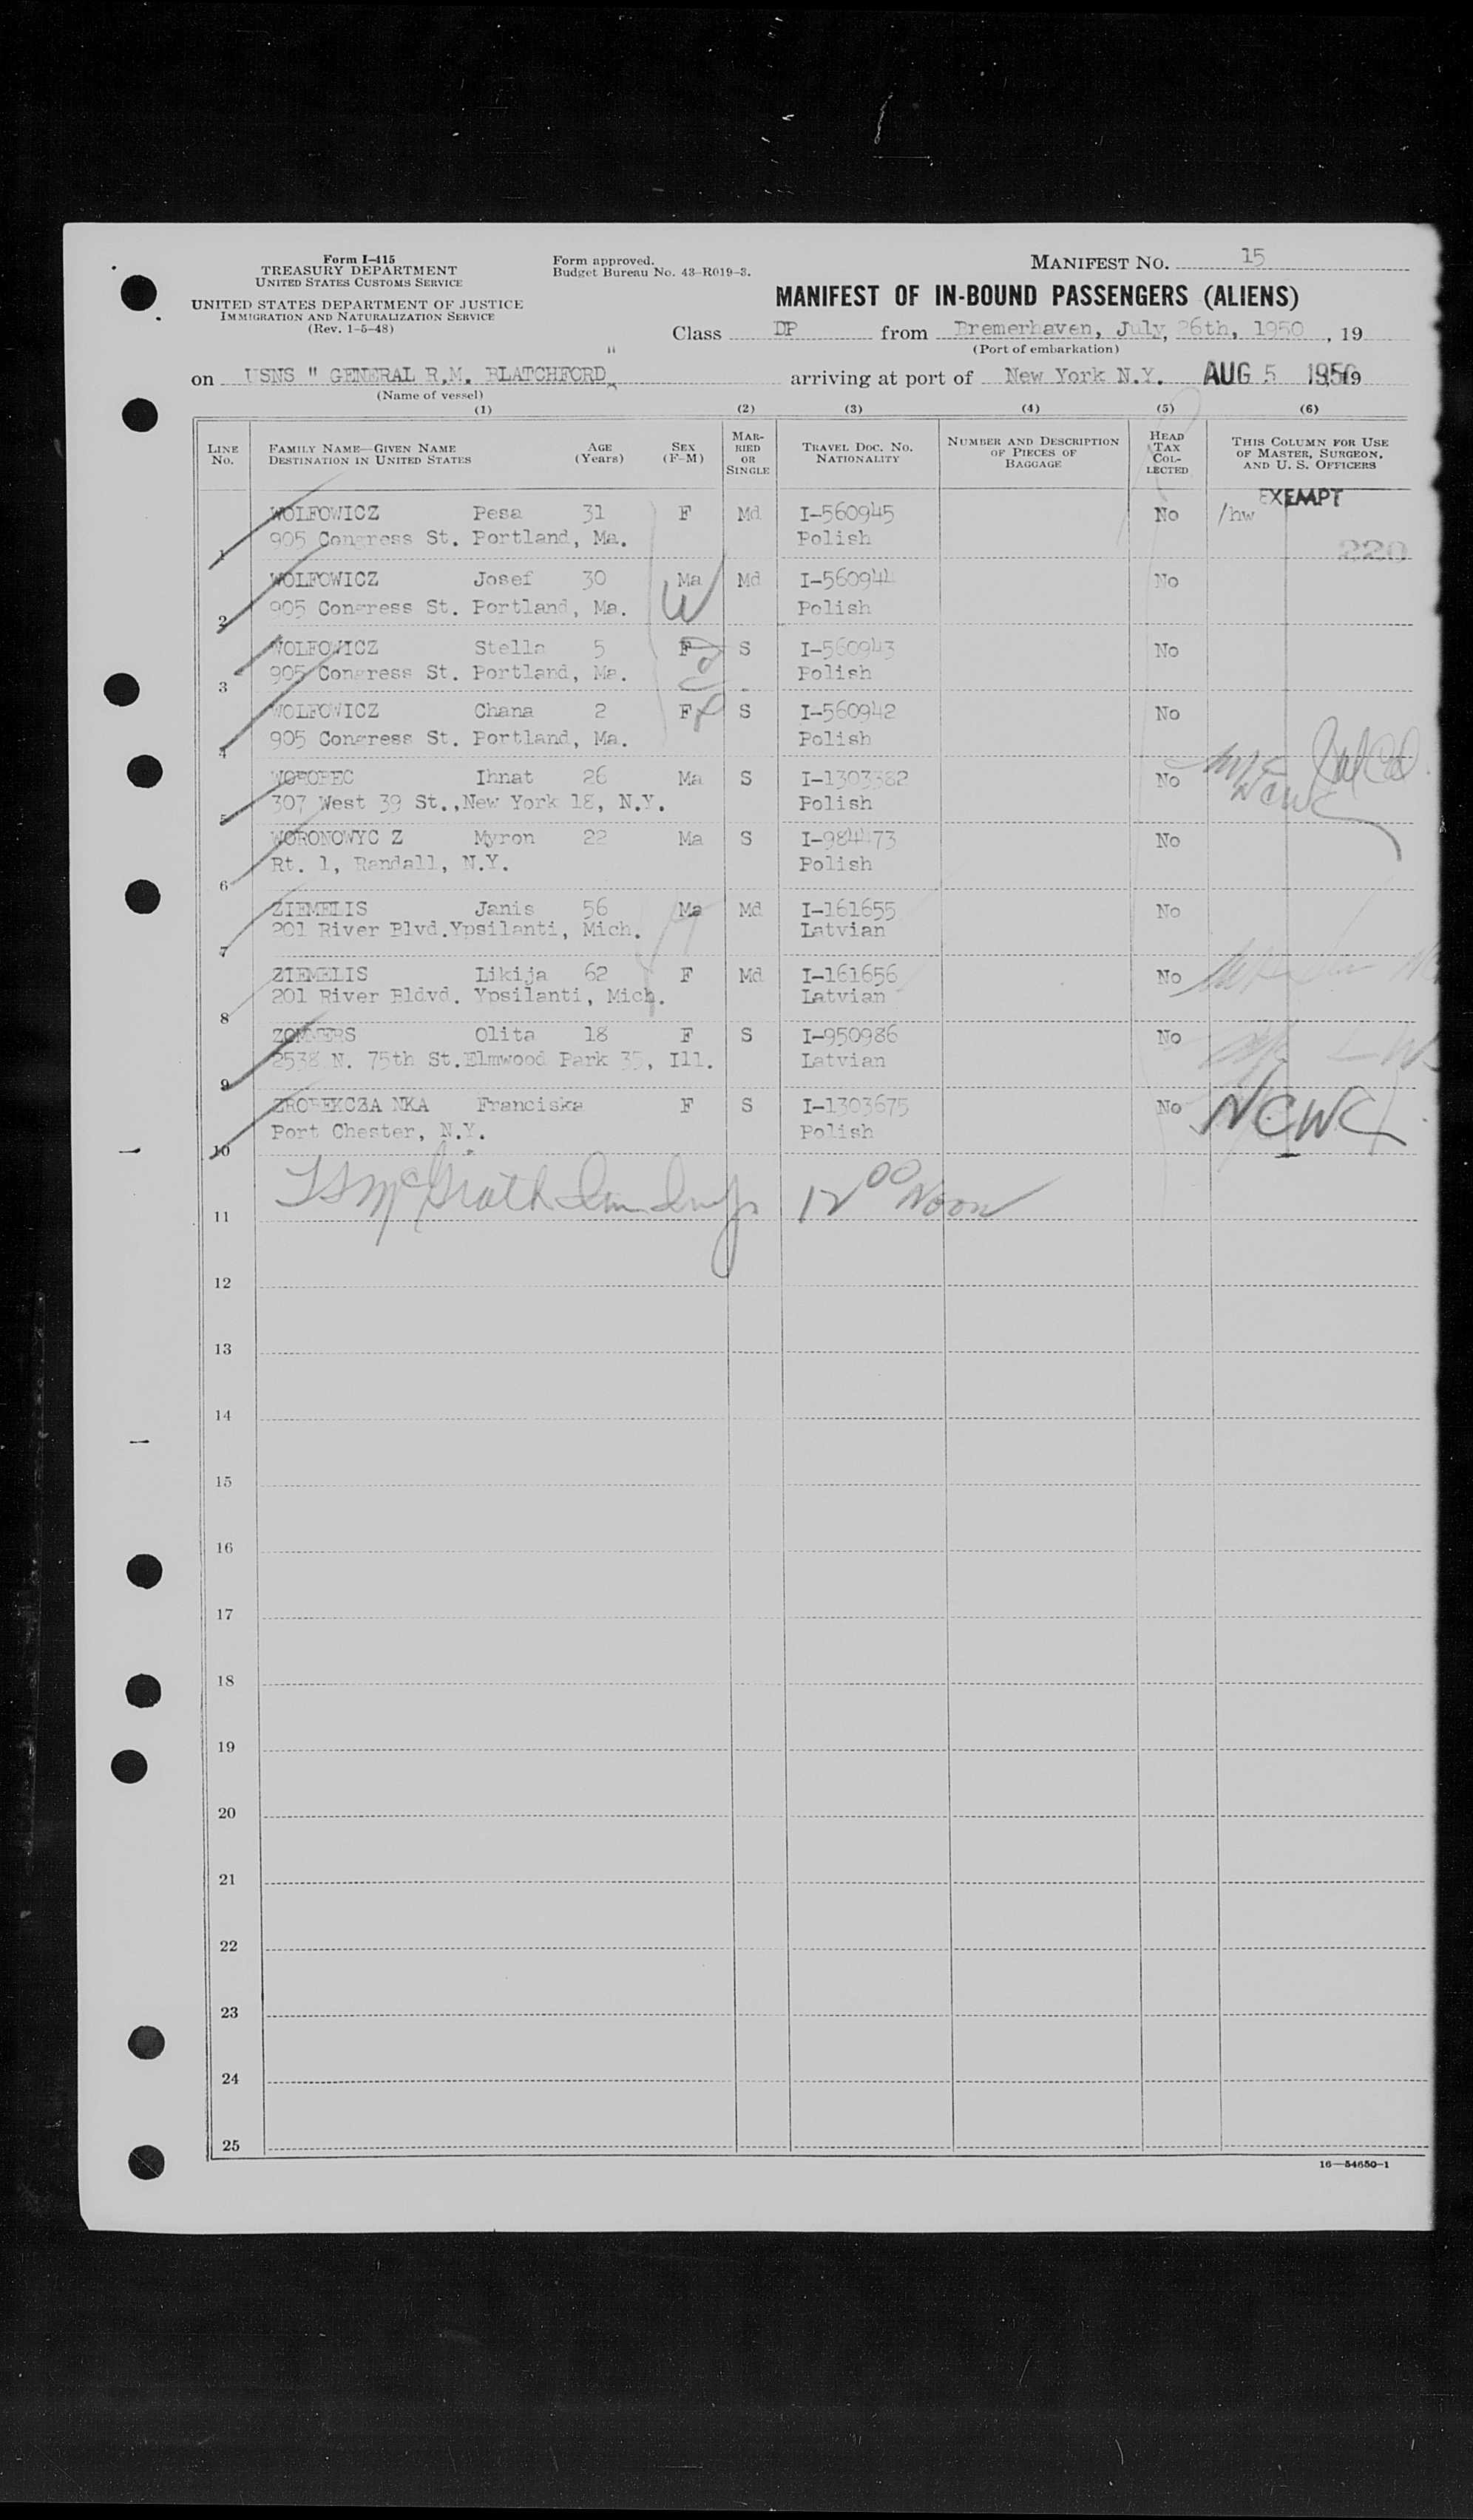 Form I-415
TREASURY DEPARTMENT
UNITED STATES CUSTOMS SERVICE
UNITED STATES DEPARTMENT OF JUSTICE
IMMIGRATION AND NATURALIZATION SERVICE
(Rev. 1-5-48)
Form approved.
Budget Bureau No. 43-R019-3.
MANIFEST NO. 15
MANIFEST OF IN-BOUND PASSENGERS (ALIENS)
Class DP from Bremerhaven, July, 26th, 1950, 19
(Port of embarkation)
on USNS " GENERAL R.M. BLATCHFORD " arriving at port of New York N.Y. AUG 5 1950, 19
(Name of vessel)
(1) (2) (3) (4) (5) (6)
LINE NO. FAMILY NAME—GIVEN NAME DESTINATION IN UNITED STATES AGE (Years) SEX (F-M) MARRIED OR SINGLE TRAVEL DOC. NO. NATIONALITY NUMBER AND DESCRIPTION OF PIECES OF BAGGAGE HEAD TAX COLLECTED THIS COLUMN FOR USE OF MASTER, SURGEON, AND U. S. OFFICERS
EXEMPT
WOLFOWICZ Pesa 31 F Md I-560945 No /hw
1 905 Congress St. Portland, Ma. Polish 220
WOLFOWICZ Josef 30 Ma Md I-560944 No
2 905 Congress St. Portland, Ma. Polish
WOLFOWICZ Stella 5 F S I-560943 No
3 905 Congress St. Portland, Ma. Polish
WOLFOWICZ Chana 2 F S I-560942 No
4 905 Congress St. Portland, Ma. Polish
WOROPEC Ihnat 26 Ma S I-1303382 No
5 307 West 39 St.,New York 18, N.Y. Polish NCWC
WORONOWYC Z Myron 22 Ma S I-984473 No
6 Rt. 1, Randall, N.Y. Polish
ZIEMELIS Janis 56 Ma Md I-161655 No
7 201 River Blvd.Ypsilanti, Mich. Latvian
ZIEMELIS Likija 62 F Md I-161656 No
8 201 River Bldvd. Ypsilanti, Mich. Latvian
ZOMMERS Olita 18 F S I-950986 No
9 2538 N. 75th St.Elmwood Park 35, Ill. Latvian
ZROBEKCZA NKA Franciska F S I-1303675 No NCWC
10 Port Chester, N.Y. Polish
11 McGrath 12 00 Noon
12
13
14
15
16
17
18
19
20
21
22
23
24
25
16—54650-1